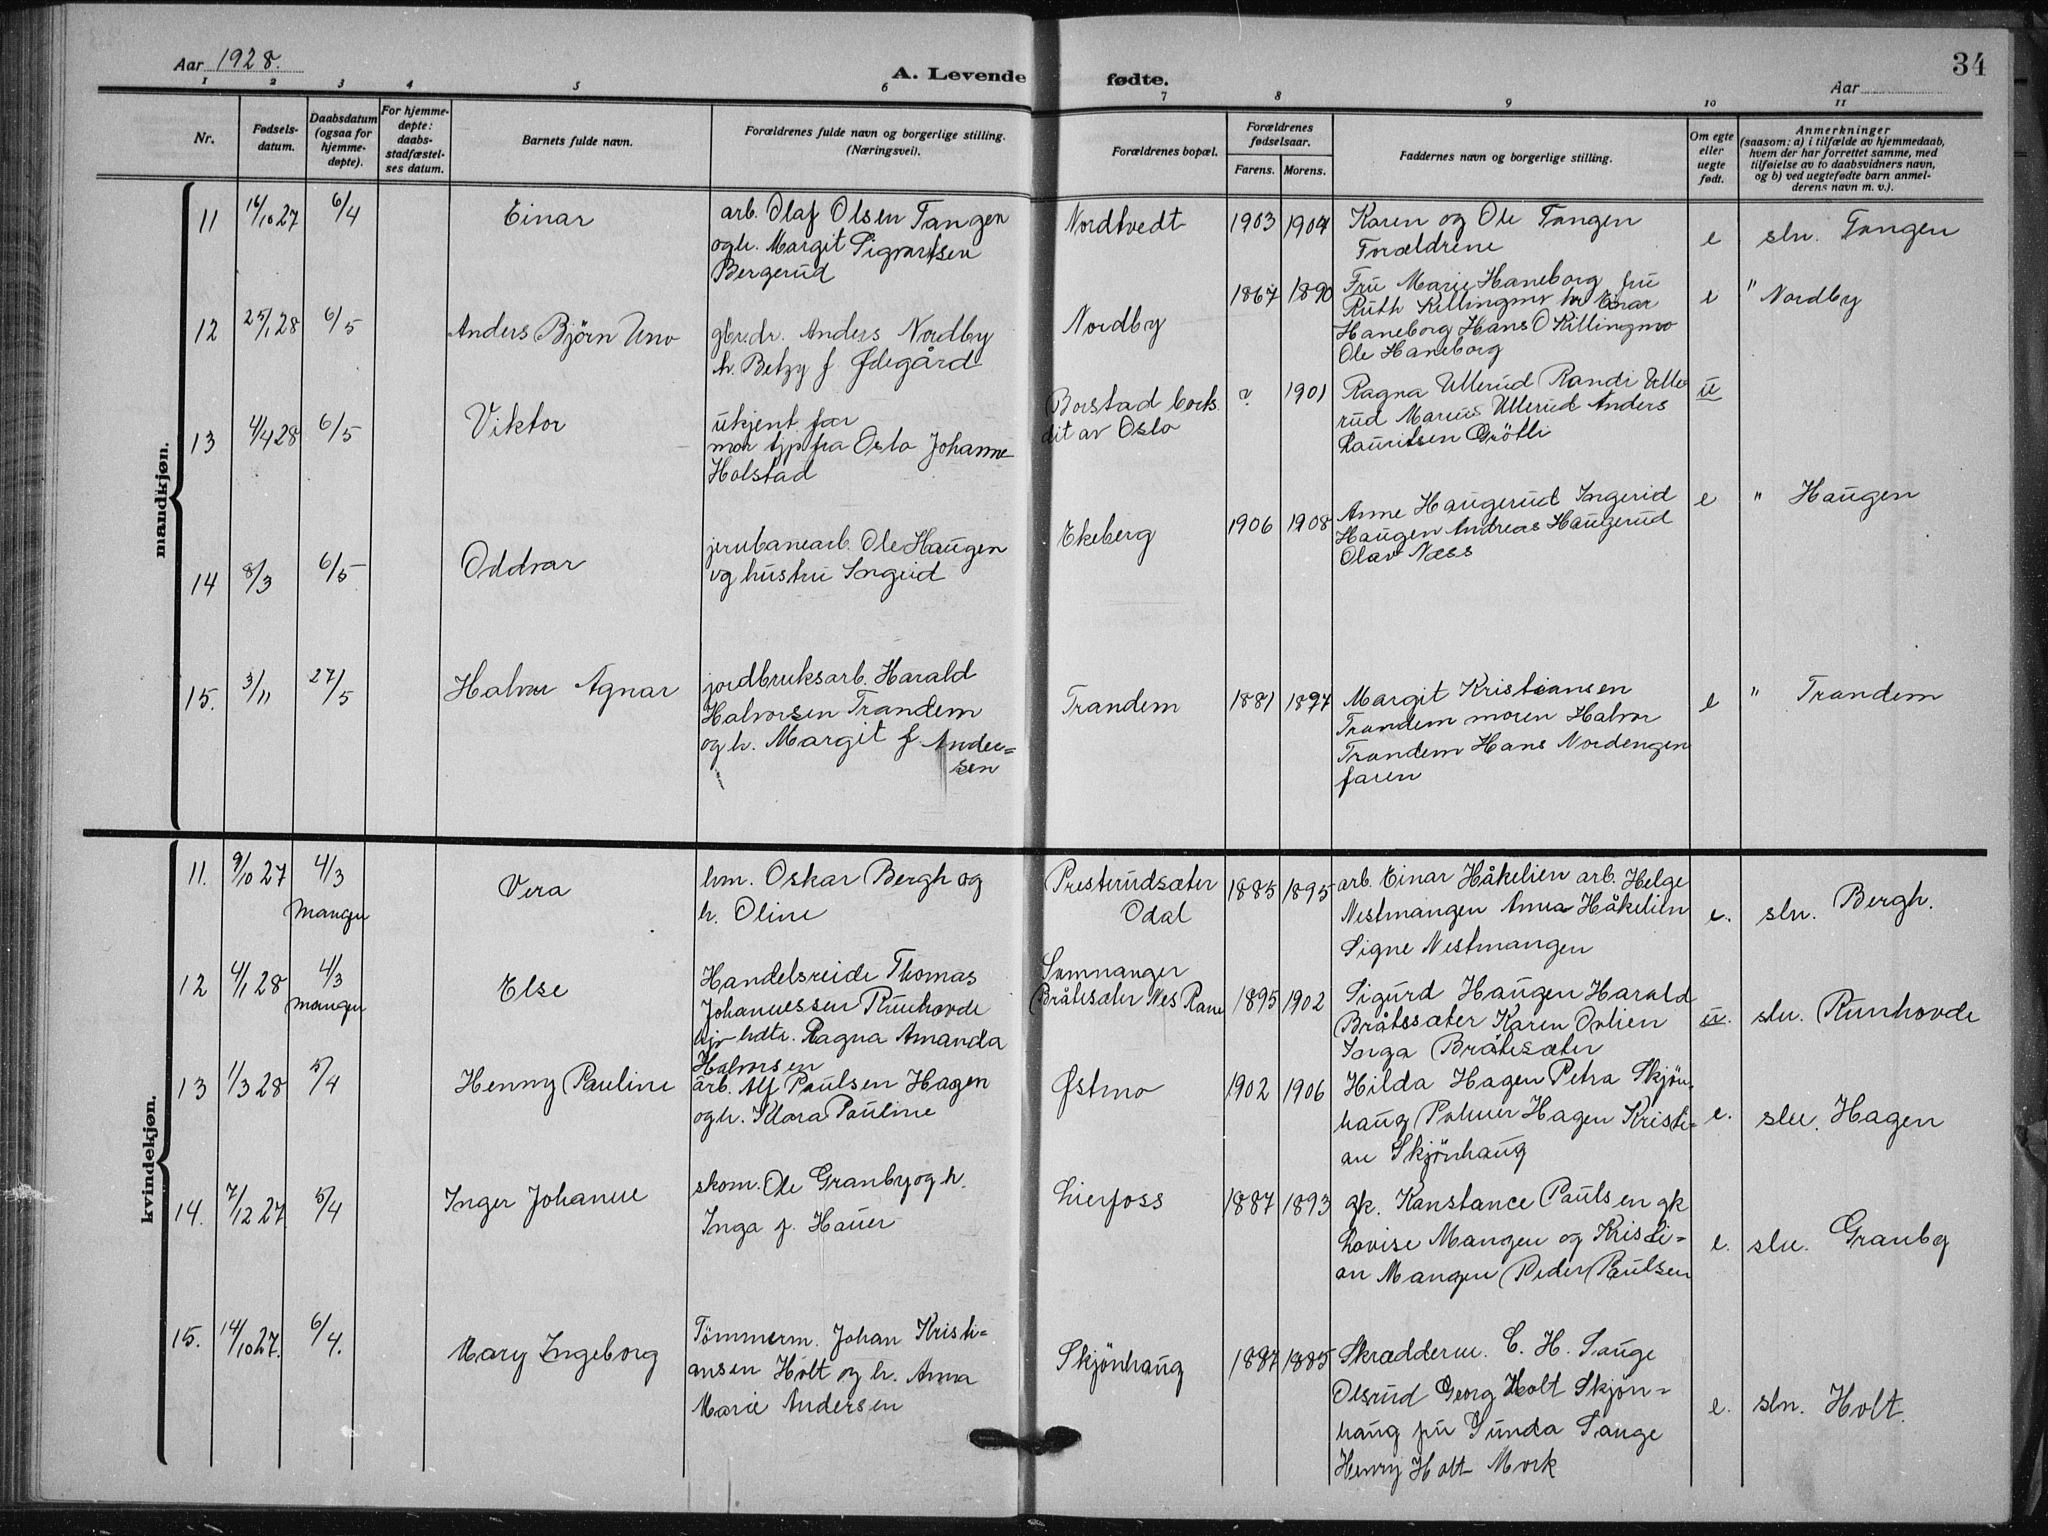 34
Aar 1928.
A. Levende fødte.
Aar
1 2 3 4 5 6 7 8 9 10 11
Nr.
Fødsels-
datum.
Daabsdatum
(ogsaa for
hjemme-
døpte).
For hjemme-
døpte:
daabs-
stadfæstel-
ses datum.
Barnets fulde navn.
Forældrenes fulde navn og borgerlige stilling.
(Næringsvei).
Forældrenes bopæl.
Forældrenes
fødselsaar.
Farens. Morens.
Faddernes navn og borgerlige stilling.
Om egte
eller
uegte
født.
Anmerkninger
(saasom: a) i tilfælde av hjemmedaab,
hvem der har forrettet samme, med
tilføielse av to daabsvidners navn,
og b) ved uegtefødte barn anmel-
derens navn m. v.).
mandkjøn.
11 16/10 27 6/4 Einar
arb. Olaf Olsen Tangen
og h. Margit Sigvartsen
Bergerud
Nordtvedt 1903 1904
Karen og Ole Tangen
Forældrene
e sln. Tangen
12 25/1 28 6/5 Anders Bjørn Uno
gbr.dr. Anders Nordby
h. Betzy f. Ødegård
Nordby 1867 1890
Fru Marie Haneborg fru
Ruth Killingmo hr Einar
Haneborg Hans O Killingmo
Ole Haneborg
e " Nordby
13 4/4 28 6/5 Viktor
ukjent far
mor tjp fra Oslo Johanne
Holstad
Borstad borts.
dit av Oslo
? 1901
Ragna Ullerud Randi Ulle
rud Marius Ullerud Anders
Lauritsen Grötli
u
14 8/3 6/5 Oddvar
jernbanearb. Ole Haugen
og hustru Ingrid
Ekeberg 1906 1908
Anne Haugerud Ingerid
Haugen Andreas Haugerud
Olav Næss
e " Haugen
15. 3/11 27/5 Halvor Agnar
jordbruksarb. Harald
Halvorsen Trandem
og h. Margit f. Ander=
sen
Trandem 1881 1897
Margit Kristiansen
Trandem moren Halvor
Trandem Hans Nordengen
faren
e " Trandem
kvindekjøn.
11. 9/10 27 4/3
Mangen
Vera
hm. Oskar Bergh og
h. Oline
Presterudsæter
Odal
1885 1895
arb. Einar Håkelien arb. Helge
Nestmangen Anna Håkelien
Signe Nestmangen
e. sln. Bergh.
12 4/1 28 4/3
Mangen
Else
Handelsreide Thomas
Johannessen Runhovde
Ragna Amanda
Halvorsen
Samnanger
Bråtesæter Nes Rom
1895 1902
Sigurd Haugen Harald
Bråtesæter Karen Ovlien
Inga Bråtesæter
u. sln. Runhovde
13 1/3 28 5/4 Henny Pauline
arb. Alf Paulsen Hagen
og h. Klara Pauline
Østmo 1902 1906
Hilda Hagen Petra Skjön
haug Palmer Hagen Kristi=
an Skjönhaug
e. sln. Hagen
14. 7/12 27 5/4 Inger Johanne
skom. Ole Granby og h.
Inga f. Hauer
Lierfoss 1887 1893
gk. Konstance Paulsen gk
Lovise Mangen og Kristi=
an Mangen Peder Paulsen
e. sln. Granby
15. 14/10 27. 6/4. Mary Ingeborg
Tömmerm. Johan Kristi=
ansen Holt og h. Anna
Marie Andersen
Skjönhaug 1887 1885
Skrædderne C. H. Sauge
Olsrud Georg Holt Skjön=
haug fru Gunda Sauge
Henry Holt Mork
e. sln. Holt.